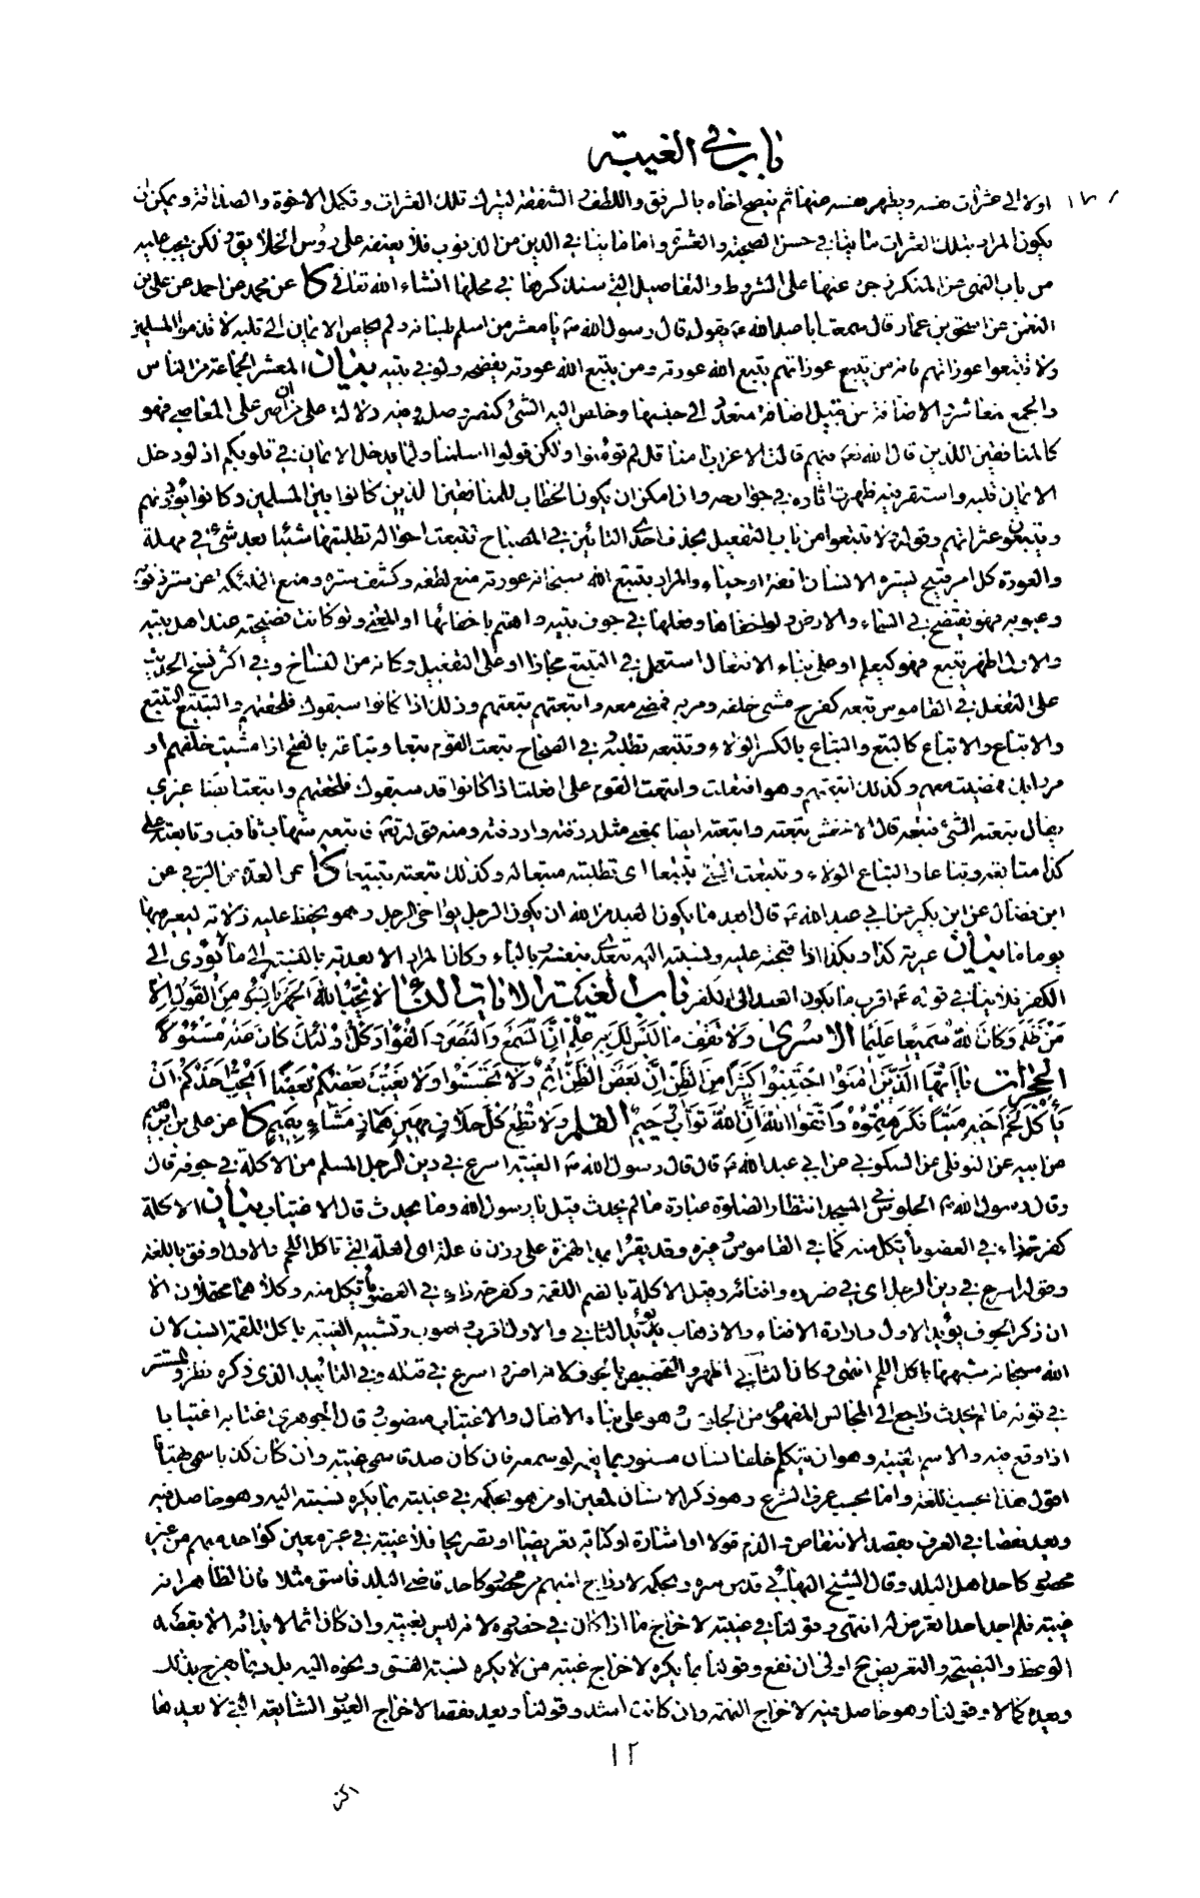 باب في الغيبة
١٧٨ اولا الى عثرات نفسه ويطهر نفسه عنها ثم ينصح اخاه بالرفق واللطف و الشفقة ليترك تلك العثرات وتكمل الاخوة والصداقة ويمكن ان
يكون المراد بتلك العثرات ما ينافي حسن الصحبة والعشرة واما ما ينافي الدين من الذنوب فلا يعنفه على رؤس الخلايق ولكن يجب عليه
من باب النهي عن المنكر زجره عنها على الشروط والتفاصيل التي سنذكرها في محلها انشاء الله تعالى كا عن محمد عن احمد عن علي بن
النعمن عن اسحق بن عمار قال سمعت ابا عبد الله ع يقول قال رسول الله ص يا معشر من اسلم بلسانه ولم يخلص الايمان الى قلبه لا تذموا المسلمين
ولا تتبعوا عوراتهم فانه من يتبع عوراتهم يتبع الله عورته ومن يتبع الله عورته يفضحه ولو في بيته بيان المعشر الجماعة من الناس
والجمع معاشر والاضافة من قبيل اضافة متعدد الى جنسها وخلص اليه الشئ كنصر وصل وفيه دلالة على ان من اصر على المعاصي فهو
كالمنافقين الذين قال الله تعه فيهم قالت الاعراب امنا قل لم تؤمنوا ولكن قولوا اسلمنا ولما يدخل الايمان في قلوبكم اذ لو دخل
الايمان قلبه واستقر فيه ظهرت اثاره في جوارحه وان امكن ان يكون الخطاب للمنافقين الذين كانوا بين المسلمين وكانوا يؤذونهم
ويتبعون عثراتهم وقوله لا تتبعوا من باب التفعيل بحذف احدى التائين في المصباح تتبعت احواله تطلبتها شيئا بعد شئ في مهلة
والعورة كل امر قبيح يستره الانسان انفة او حياء والمراد بتتبع الله سبحانه عورته منع لطفه وكشف ستره ومنع الملئكة عن ستر ذنوبه
وعيوبه فهو يفتضح في السماء والارض ولو اخفاها وفعلها في جوف بيته واهتم باخفائها او المعنى ولو كانت فضيحته عند اهل بيته
والاول اظهر يتبع فهو كيعلم او على بناء الافتعال استعمل في التتبع مجازا او على التفعيل وكانه من النساخ وفي اكثر نسخ الحديث
على التفعل في القاموس تبعه كفرح مشى خلفه ومر به فمضى معه واتبعتهم تبعتهم وذلك اذا كانوا سبقوك فلحقتهم والتتبيع التتبع
والاتباع والاتباع كالتبع والتباع بالكسر الولاء وتتبعه تطلبه في الصحاح تبعت القوم تبعا وتباعة بالفتح اذا مشيت خلفهم او
مروا بك فمضيت معهم وكذلك اتبعتهم وهو افتعلت واتبعت القوم على افعلت اذا كانوا قد سبقوك فلحقتهم واتبعت ايضا غيري
يقال تبعته الشئ فتبعه قال الاخفش تبعته واتبعته ايضا بمعنى مثل ردفته واردفته ومنه قوله تعه فاتبعه شهاب ثاقب وتابعته على
كذا متابعة وتباعا والتباع الولاء وتتبعت الشئ تتبعا اى تطلبته متبعا له وكذلك تبعته تتبيعا كا عن العدة عن البرقي عن
ابن فضال عن ابن بكير عن ابي عبد الله ع قال ابعد ما يكون العبد من الله ان يكون الرجل يواخى الرجل وهو يحفظ عليه زلاته ليعيره بها
يوما ما بيان عيرته كذا وبكذا اذا قبحته عليه ونسبته اليه يتعدى بنفسه وبالباء وكان المراد الابعدية بالنسبة الى ما لا يؤدى الى
الكفر فلا ينافي قوله ع اقرب ما يكون العبد الى الكفر باب الغيبة الايات النسا لا يحب الله الجهر بالسوء من القول الا
من ظلم وكان الله سميعا عليما الاسرى ولا تقف ما ليس لك به علم ان السمع والبصر والفؤاد كل اولئك كان عنه مسئولا
الحجرات يا ايها الذين امنوا اجتنبوا كثيرا من الظن ان بعض الظن اثم ولا تجسسوا ولا يغتب بعضكم بعضا ايحب احدكم ان
ياكل لحم اخيه ميتا فكرهتموه واتقوا الله ان الله تواب رحيم القلم ولا تطع كل حلاف مهين هماز مشاء بنميم كا عن علي بن ابرهيم
عن ابيه عن النوفلي عن السكوني عن ابي عبد الله ع قال قال رسول الله ص الغيبة اسرع في دين الرجل المسلم من الاكلة في جوفه قال
وقال رسول الله ص الجلوس في المسجد انتظار الصلوة عبادة ما لم يحدث قيل يا رسول الله وما يحدث قال الاغتياب بيان الاكلة
كفرحة داء في العضو ياتكل منه كما في القاموس وغيره وقد يقرا بمد الهمزة على وزن فاعلة اى العلة التي تاكل اللحم والاول اوفق باللغة
وقوله اسرع في دين الرجل اى في ضرره وافنائه وقيل الاكلة بالضم اللقمة وكفرحة داء في العضو ياتكل منه وكلاهما محتملان الا
ان ذكر الجوف يؤيد الاول وارادة الافناء والاذهاب يؤيد الثاني والاول اقرب واصوب وتشبيه الغيبة باكل اللقمة انسب لان
الله سبحانه شبهها باكل اللحم انتهى وكان الثاني اظهر والتخصيص بالجوف لانه اضر واسرع في قتله وفي التائيد الذى ذكره نظر والمستتر
في قوله ما لم يحدث راجع الى الجالس المفهوم من الجلوس وهو على بناء الافعال والاغتياب منصوب قال الجوهرى اغتابه اغتيابا
اذا وقع فيه والاسم الغيبة وهو ان يتكلم خلف انسان مستور بما يغمه لو سمعه فان كان صدقا سمي غيبة وان كان كذبا سمي بهتانا
اقول هذا بحسب اللغة واما بحسب عرف الشرع وهو ذكر الانسان المعين او من هو بحكمه في غيبته بما يكره نسبته اليه وهو حاصل فيه
ويعد نقصا في العرف بقصد الانتقاص والذم قولا او اشارة او كناية تعريضا او تصريحا فلا غيبة في غير معين كواحد مبهم من غير
محصور كاحد اهل البلد وقال الشيخ البهائي قدس سره وبحكمه لادراج المبهم من محصور كاحد قاضي البلد فاسق مثلا فان الظاهر انه
غيبة فلم اجد احدا تعرض له انتهى وقولنا في غيبته لاخراج ما اذا كان في حضوره لانه ليس بغيبة وان كان اثما لايذائه الا بقصد
الوعظ والنصيحة والتعريض ح اولى ان نفع وقولنا بما يكره لاخراج غيبة من لا يكره نسبة الفسق ونحوه اليه بل ربما يفرح بذلك
ويعده كمالا وقولنا وهو حاصل فيه لاخراج التهمة وان كانت اشد وقولنا ويعد نقصا لاخراج العيوب الشايعة التي لا يعدها
١٢
اكثر